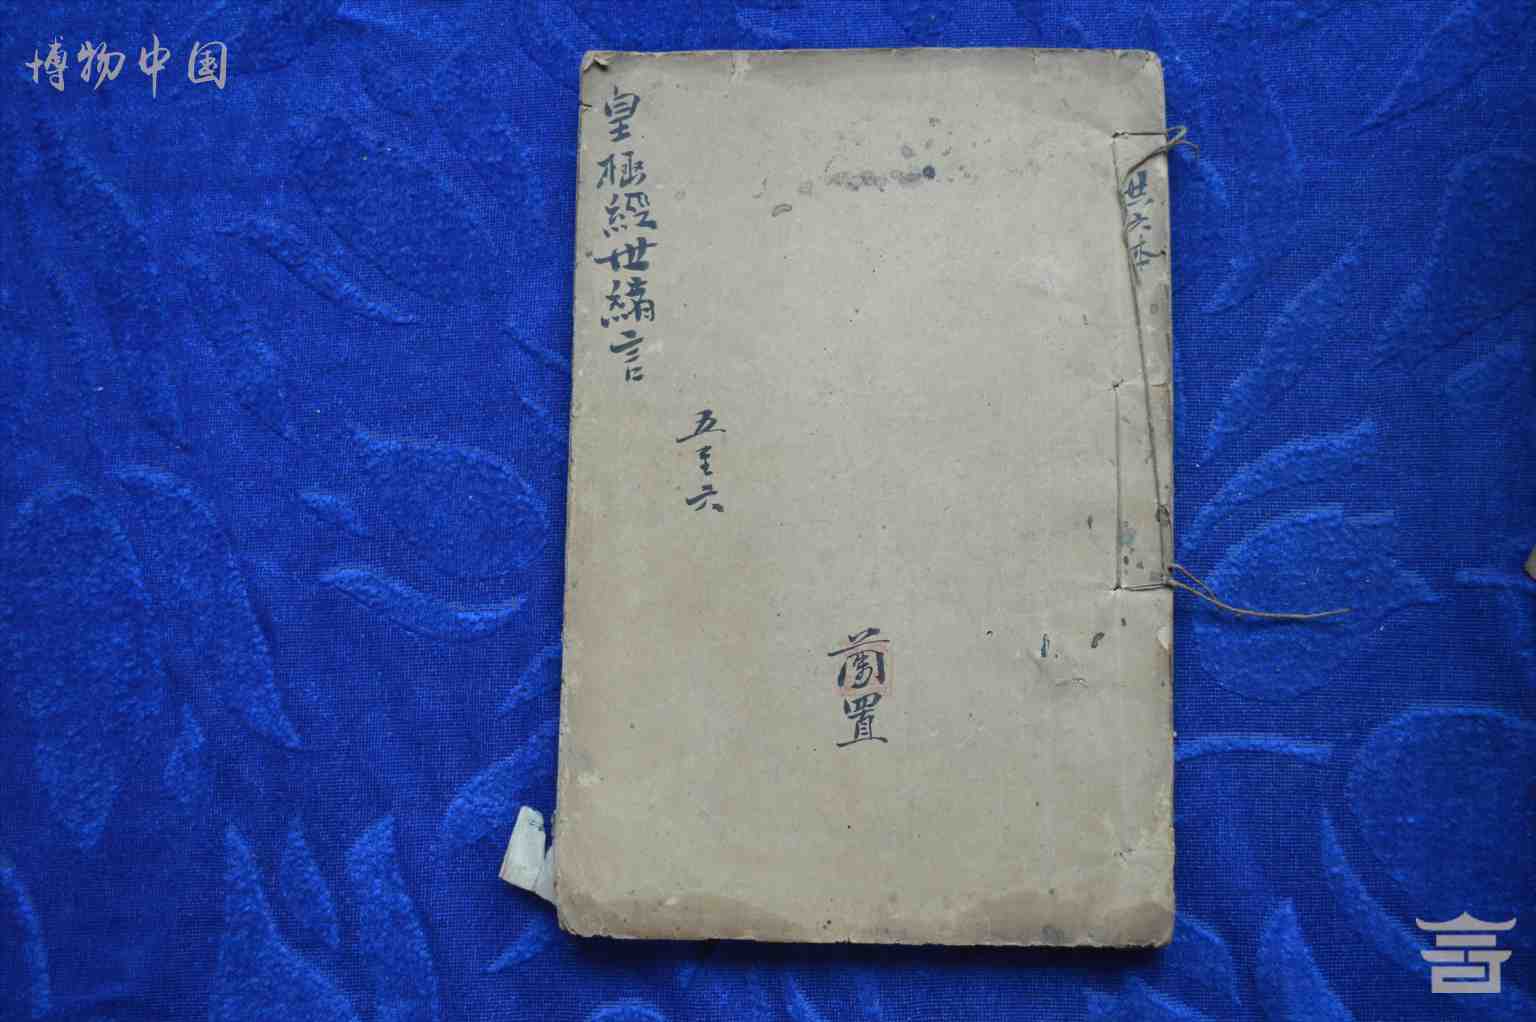 博物中国
共六本
皇極經世緒言
五至六
蘭置